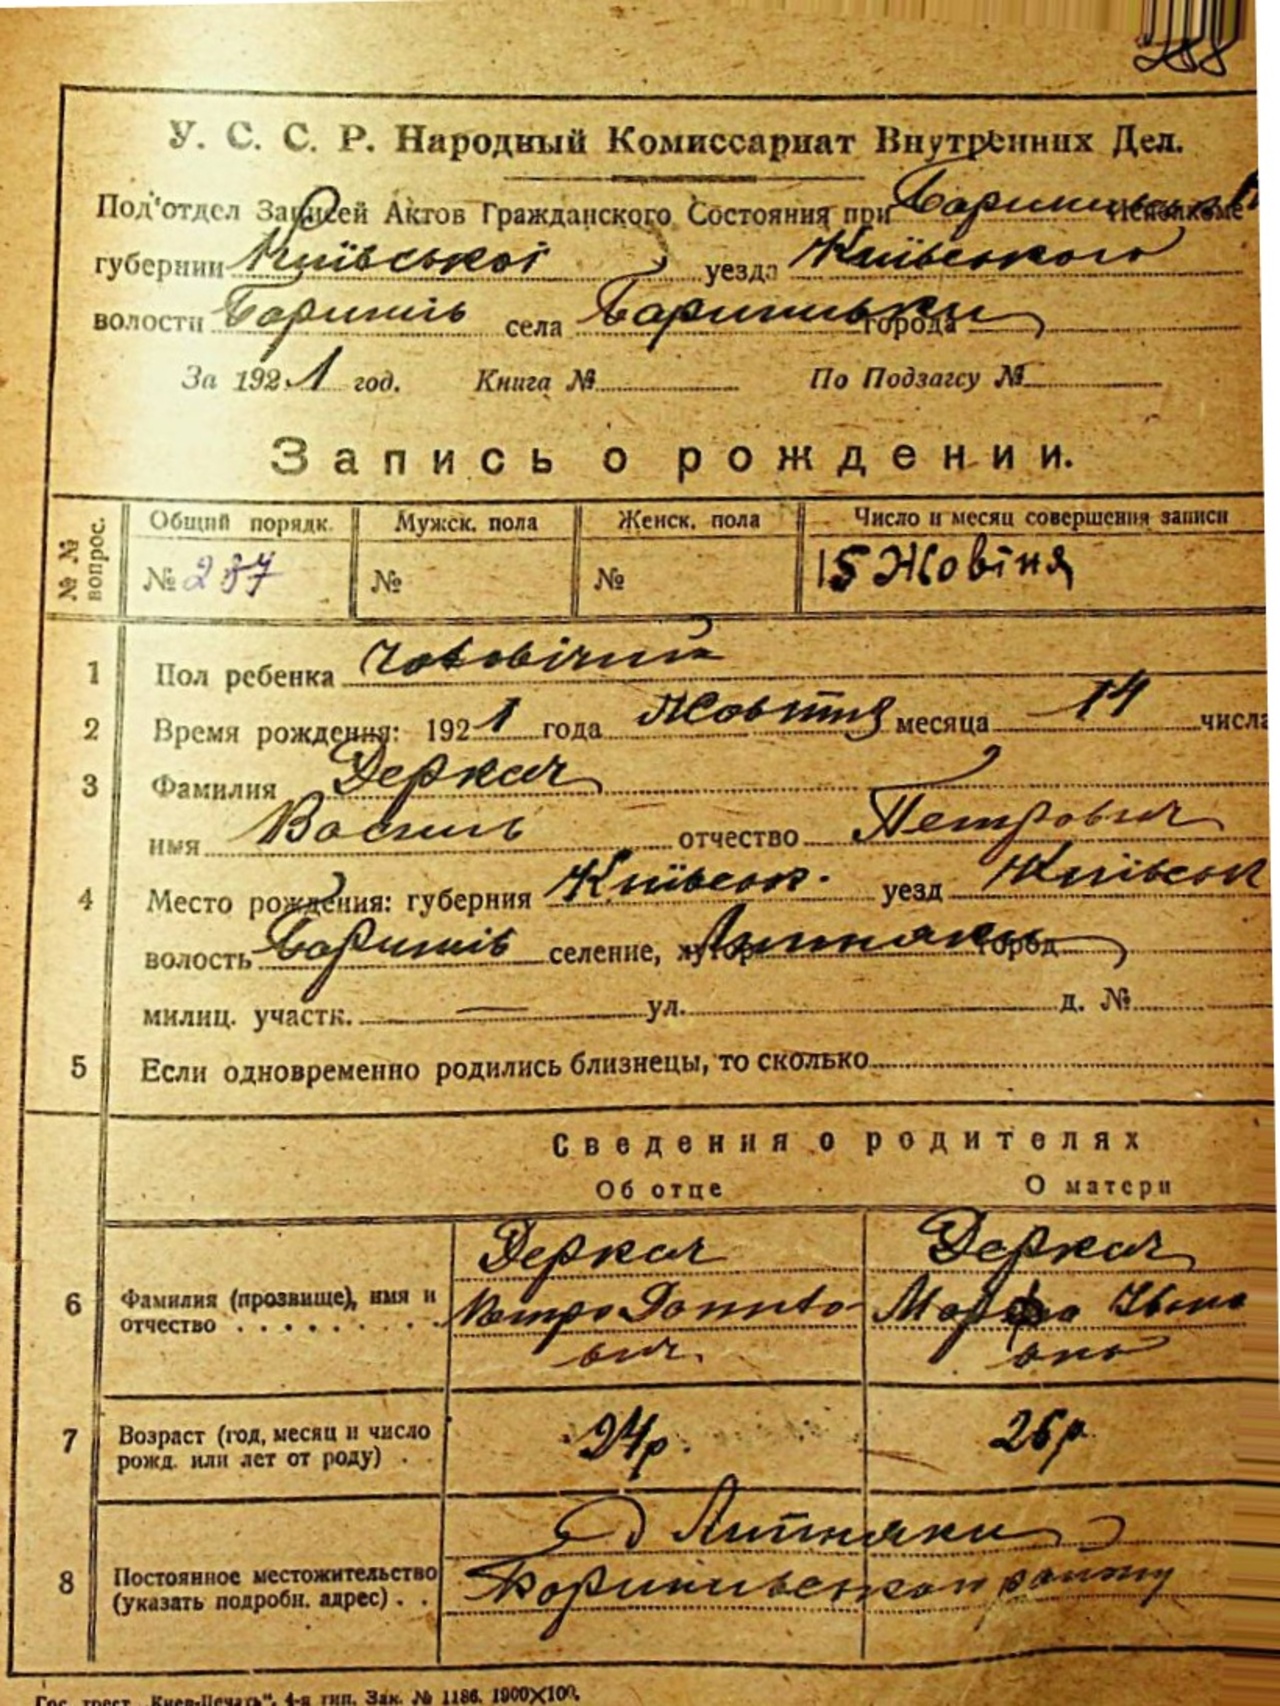 288
У. С. С. Р. Народный Комиссариат Внутренних Дел.
Под'отдел Записей Актов Гражданского Состояния при
губернии Київської уезда Київського
волости села города
За 1921 год. Книга № По Подзагсу №
Запись о рождении.
№№ вопрос. Общий порядк. Мужск. пола Женск. пола Число и месяц совершения записи
№ 237 № № 15 Жовтня
1 Пол ребенка чоловічий
2 Время рождения: 1921 года Жовтня месяца 14 числа
3 Фамилия Деркач
имя Василь отчество Петрович
4 Место рождения: губерния Київськ. уезд Київськ
волость селение, хутор Липняки город
милиц. участк. — ул. д. №
5 Если одновременно родились близнецы, то сколько
Сведения о родителях
Об отце О матери
Деркач Деркач
6 Фамилия (прозвище), имя и отчество Петро Данило- Марфа Івано
вич вна
7 Возраст (год, месяц и число рожд. или лет от роду) 24р. 26р.
8 Постоянное местожительство (указать подробн. адрес) Липняки
району
Гос. трест „Киев-Печать", 4-я тип. Зак. № 1186. 1900×100.